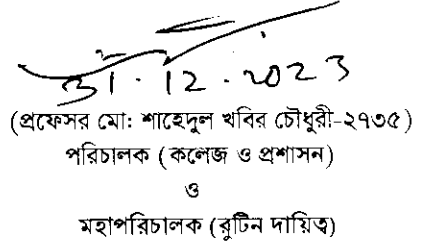 31.12.2023
(প্রফেসর মো: শাহেদুল খবির চৌধুরী-২৭৩৫)
পরিচালক (কলেজ ও প্রশাসন)
ও
মহাপরিচালক (রুটিন দায়িত্ব)